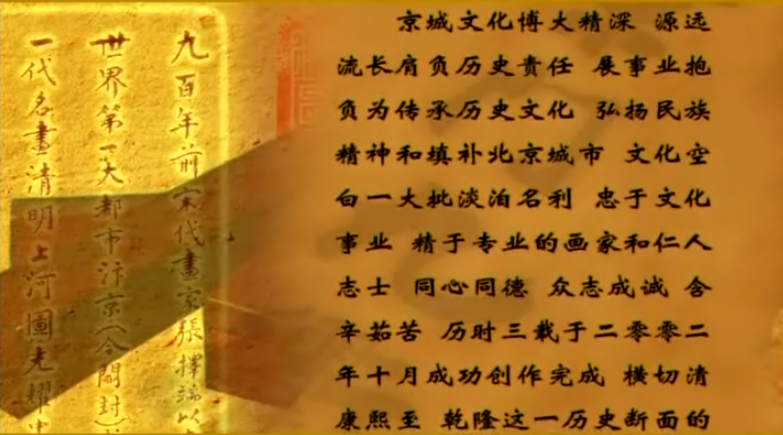 九百年前宋代畫家張擇端以
世界第一大都市汴京(今開封)
一代名畫清明上河圖光耀
京城文化博大精深 源远
流长肩负历史责任 展事业抱
负为传承历史文化 弘扬民族
精神和填补北京城市 文化空
白一大批淡泊名利 忠于文化
事业 精于专业的画家和仁人
志士 同心同德 众志成诚 含
辛茹苦 历时三载于二零零二
年十月成功创作完成 横切清
康熙至 乾隆这一历史断面的